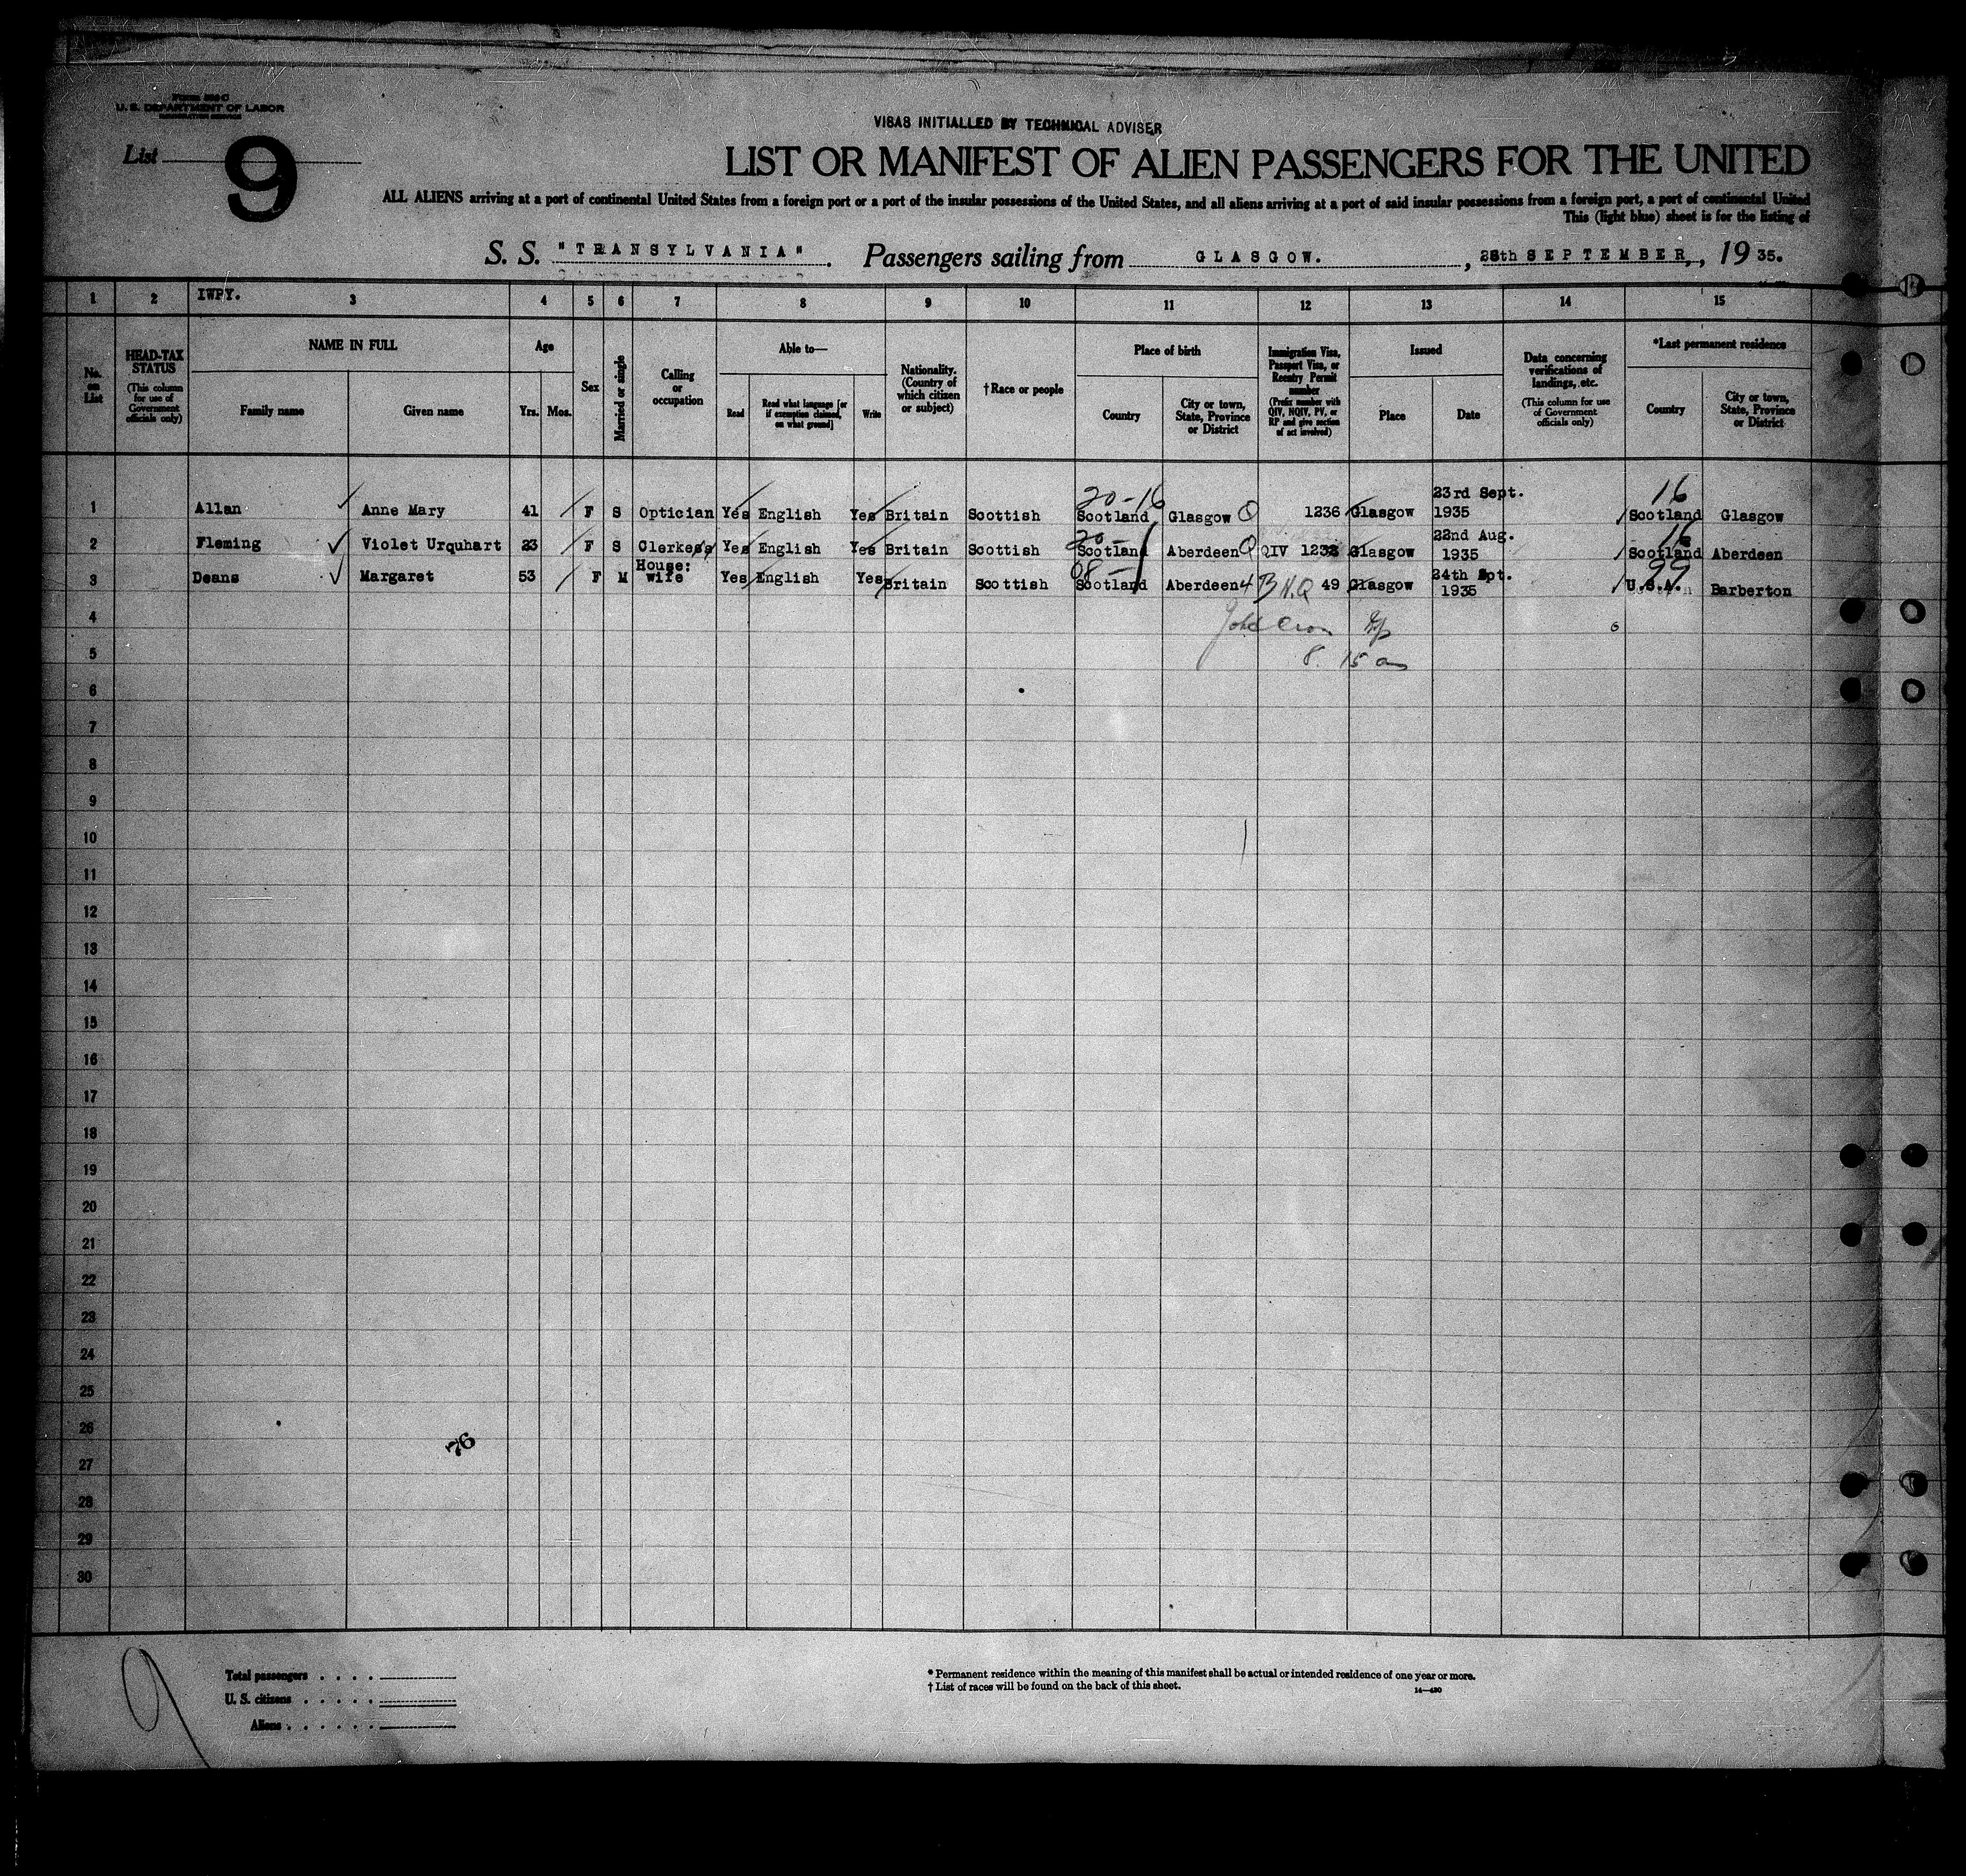 Form 500 C
U. S. DEPARTMENT OF LABOR
IMMIGRATION SERVICE
VISAS INITIALLED BY TECHNICAL ADVISER
List 9
LIST OR MANIFEST OF ALIEN PASSENGERS FOR THE UNITED
ALL ALIENS arriving at a port of continental United States from a foreign port or a port of the insular possessions of the United States, and all aliens arriving at a port of said insular possessions from a foreign port, a port of continental United
This (light blue) sheet is for the listing of
S. S. "TRANSYLVANIA". Passengers sailing from GLASGOW., 28th SEPTEMBER, , 1935.
1 2 IWPY. 3 4 5 6 7 8 9 10 11 12 13 14 15
No. on List
HEAD-TAX STATUS (This column for use of Government officials only)
NAME IN FULL
Family name Given name
Age
Yrs. Mos.
Sex
Married or single
Calling or occupation
Able to—
Read Read what language [or if exemption claimed, on what ground] Write
Nationality. (Country of which citizen or subject)
†Race or people
Place of birth
Country City or town, State, Province or District
Immigration Visa, Passport Visa, or Reentry Permit number (Prefix number with QIV, NQIV, PV, or RP and give section of act involved)
Issued
Place Date
Data concerning verifications of landings, etc. (This column for use of Government officials only)
*Last permanent residence
Country City or town, State, Province or District
20-16 23rd Sept. 16
1 Allan Anne Mary 41 F S Optician Yes English Yes Britain Scottish Scotland Glasgow Q 1236 Glasgow 1935 Scotland Glasgow
20- 22nd Aug. 16
2 Fleming Violet Urquhart 23 F S Clerkess Yes English Yes Britain Scottish Scotland Aberdeen Q QIV 1232 Glasgow 1935 Scotland Aberdeen
House: 08- 24th Spt. 99
3 Deans Margaret 53 F M wife Yes English Yes Britain Scottish Scotland Aberdeen 4 B N.Q 49 Glasgow 1935 U.S.A. Barberton
4
5 8.15 am
6
7
8
9
10
11
12
13
14
15
16
17
18
19
20
21
22
23
24
25
26
76
27
28
29
30
9
Total passengers . . . .
U. S. citizens . . . . .
Aliens . . . . . .
* Permanent residence within the meaning of this manifest shall be actual or intended residence of one year or more.
† List of races will be found on the back of this sheet.
14—430